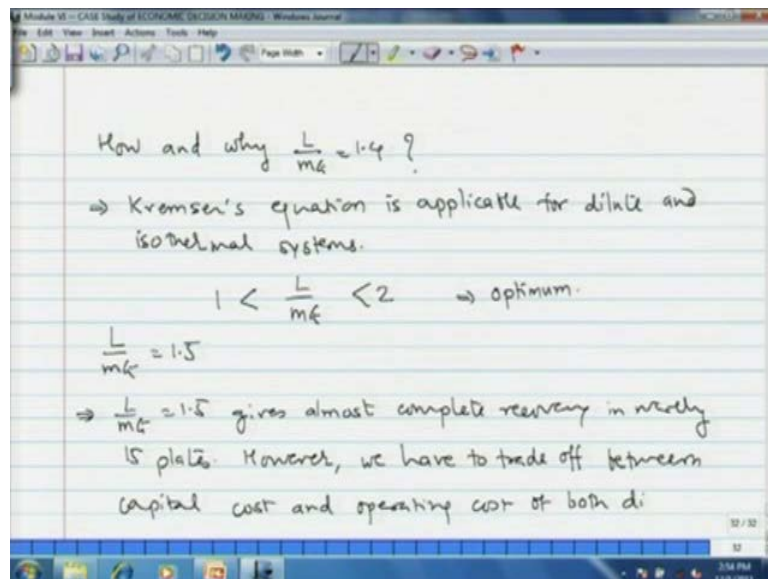 Module VI - CASE Study of ECONOMIC DECISION MAKING - Windows Journal
File Edit View Insert Actions Tools Help
Page Width
How and why L/mG = 1.4 ?
⇒ Kremser's equation is applicable for dilute and
isothermal systems.
1 < L/mG < 2 ⇒ optimum.
L/mG = 1.5
⇒ L/mG = 1.5 gives almost complete recovery in merely
15 plates. However, we have to trade off between
capital cost and operating cost of both di
32 / 32
32
2:54 PM